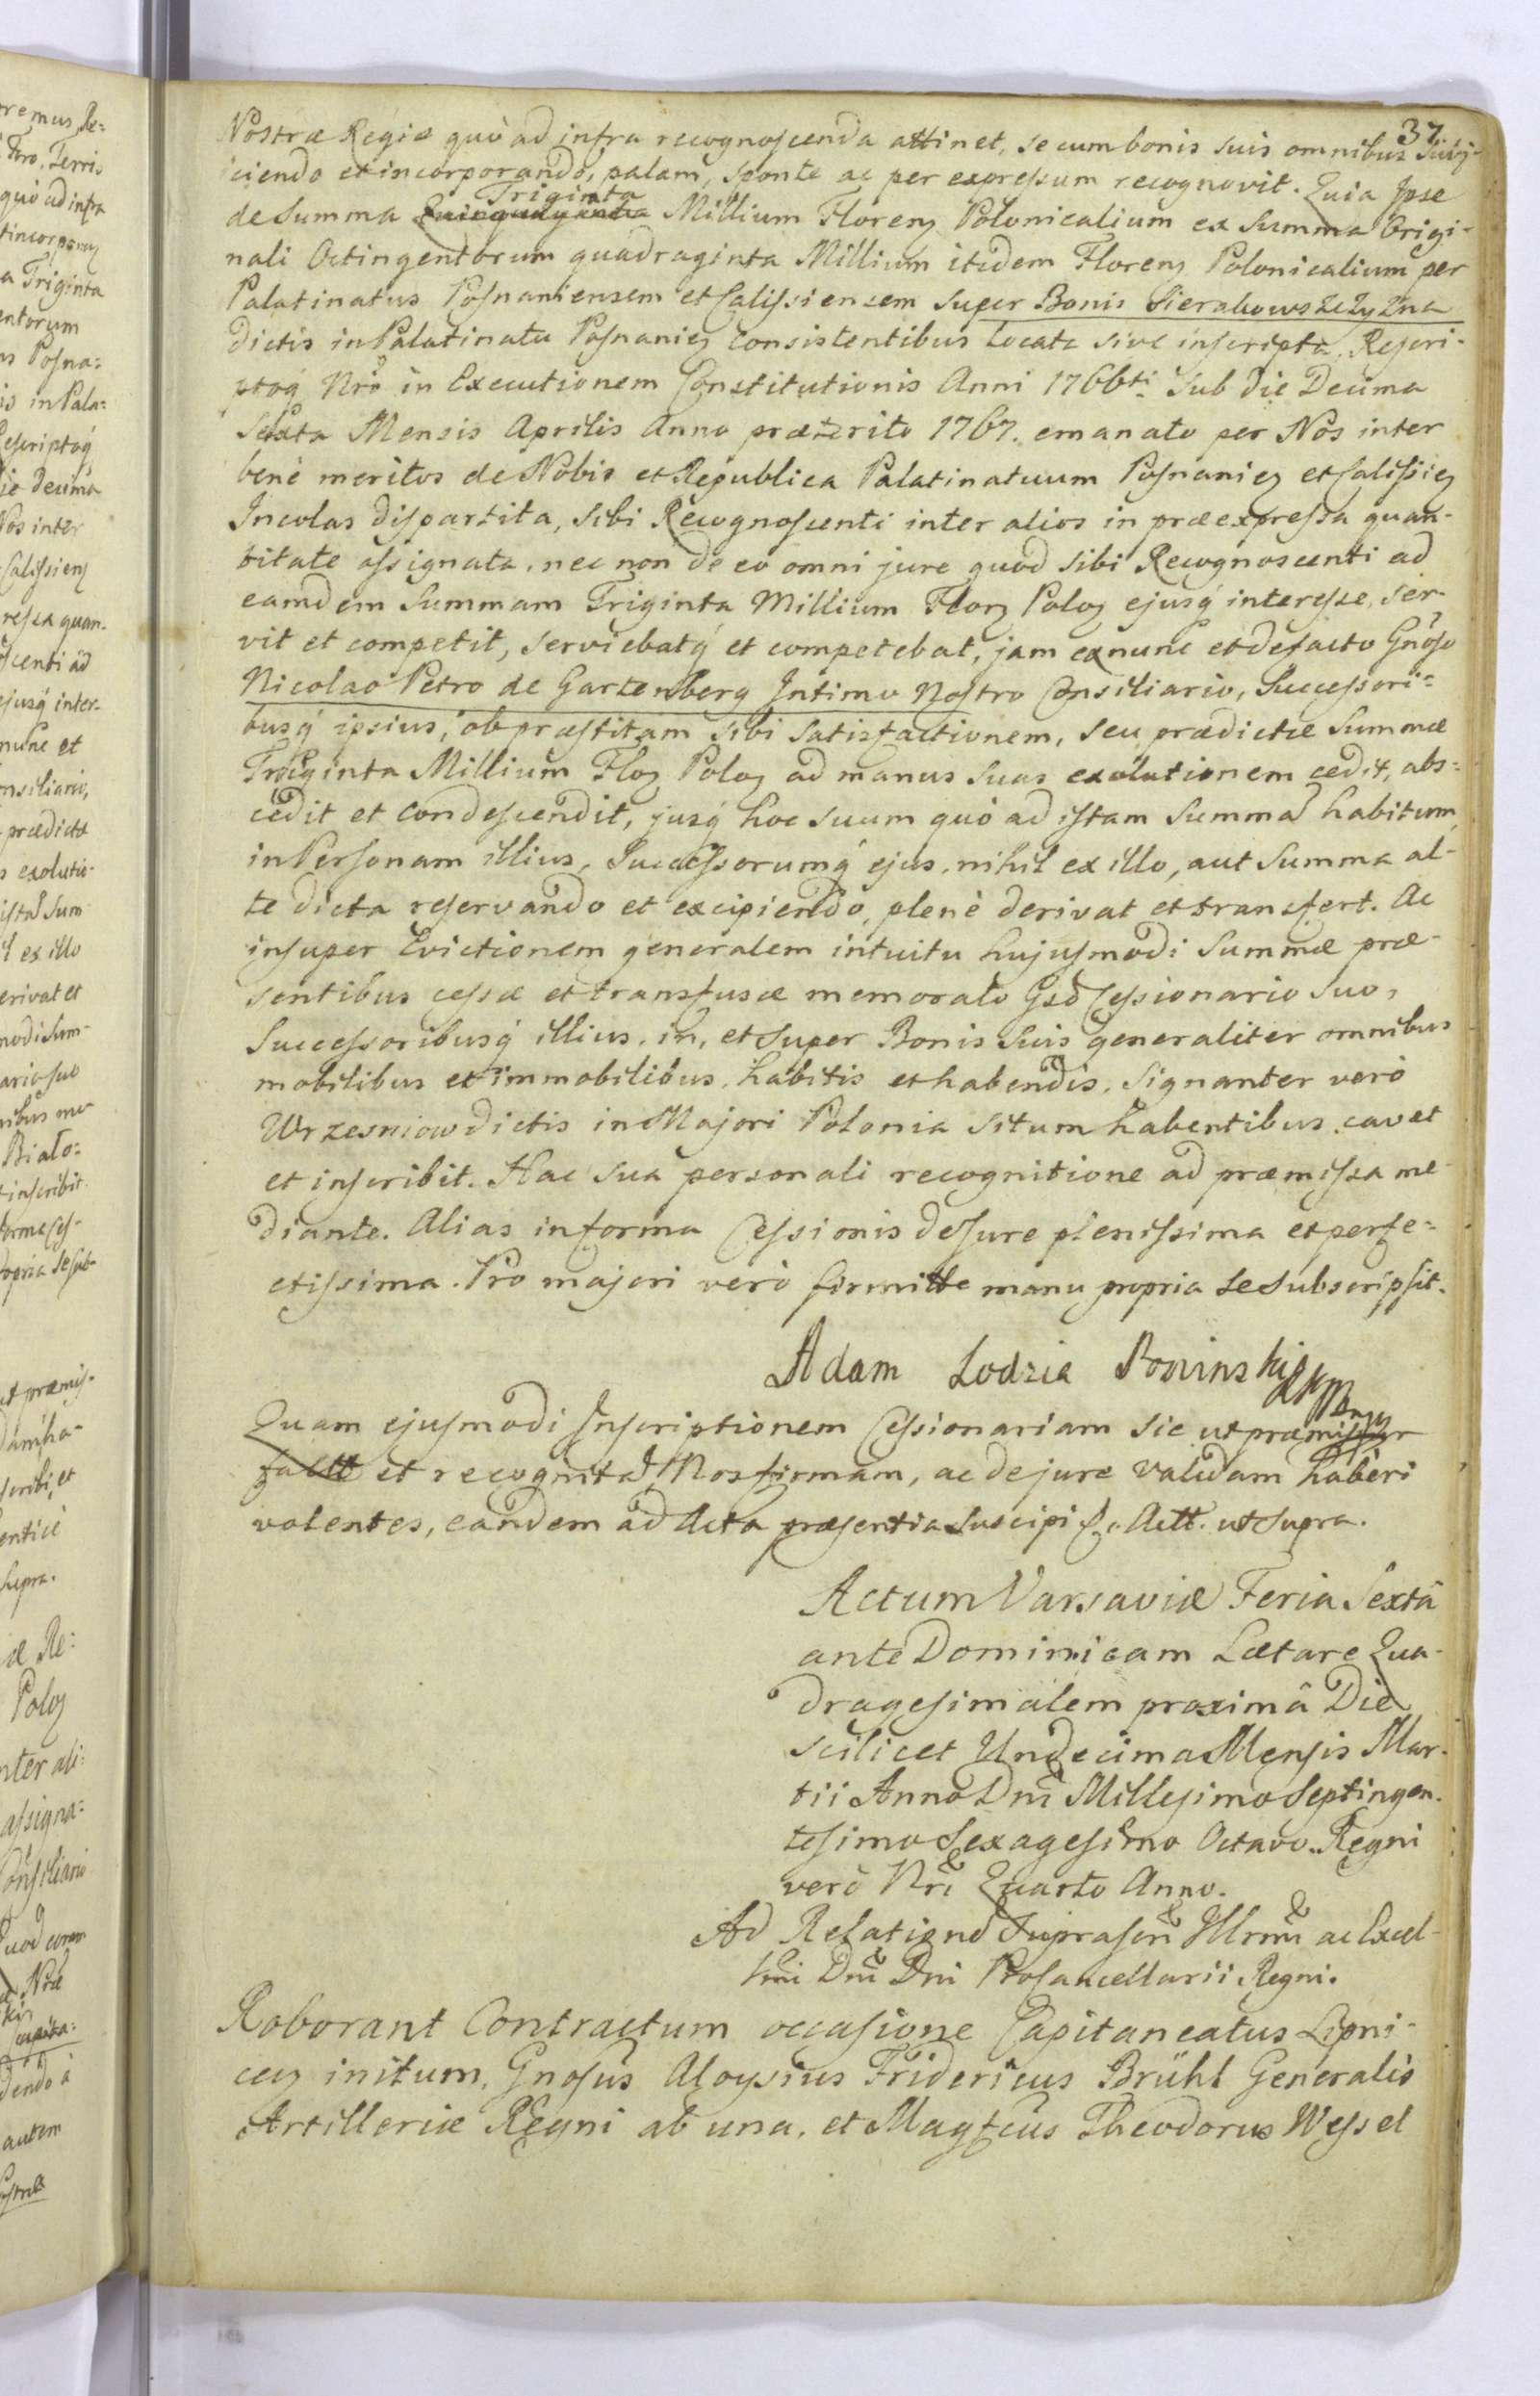 37.
Nostræ Regiæ quò ad infra recognoscenda attinet, se cum bonis suis omnibus subij-
ciendo et incorporando, palam, sponte ac per expressum recognovit. Quia Ipse
Triginta
de Summa Quinquaginta Millium Floreng Polonicalium ex Summa Origi-
nali Octingentorum quadraginta Millium itidem Floreng Polonicalium per
Palatinatus Posnaniensem et Calissiensem Super Bonis Sierakowszczyzna
dictis in Palatinatu Posnanieg consistentibus locata sive inscripta, Rescri-
ptoq́ Nro in Executionem Constitutionis Anni 1766ti Sub die Decima
Sexta Mensis Aprilis Anno præterito 1767. emanato per Nos inter
benè meritos de Nobis et Republica Palatinatuum Posnanieg et Calissieg
Incolas dispartita, sibi Recognoscenti inter alios in præexpressa quan-
titate assignata, nec non de eo omni jure quod sibi Recognoscenti ad
eamdem Summam Triginta Millium Flog Polog ejusq́ interesse, ser-
vit et competit, serviebatq́ et competebat, jam exnunc et defacto Gnoso
Nicolao Petro de Gartenberg Intimo Nostro Consiliario, Successori-
busq́ ipsius, ob præstitam sibi satisfactionem, seu prædictæ Summæ
Triginta Millium Flog Polog ad manus suas exolutionem cedit, abs-
cedit et condescendit, jusq́ hoc suum quò ad istam Summã habitum,
in Personam illius, Successorumq́ ejus, nihil ex illo, aut Summa al-
te dicta reservando et excipiendo, plenè derivat et transfert. Ac
insuper Evictionem generalem intuitu hujusmodi Summæ præ-
sentibus cessæ et transfusæ memorato Gso Cessionario suo,
Successoribusq́ illius, in, et super Bonis suis generaliter omnibus
mobilibus et immobilibus, habitis et habendis, signanter verò
Wrzesniow dictis in Majori Polonia situm habentibus cavet
et inscribit. Hac sua personali recognitione ad præmissa me-
diante. Alias in forma Cessionis de Jure plenissima et perfe-
ctissima. Pro majori verò firmitte manu propria se subscripsit.
Adam Lodzia Poninski
Quam ejusmodi Inscriptionem Cessionariam sic ut præmittitur
factã et recognitã, Nos firmam, ac de jure validam haberi
volentes, eandem ad Acta præsentia suscipi &. Actt. ut supra.
Actum Varsaviæ Feria Sextâ
ante Dominicam Lætare Qua-
dragesimalem proximâ Die
scilicet Undecima Mensis Mar-
tii Anno Dni Millesimo Septingen-
tesimo Sexagesimo Octavo. Regni
verò Nri Quarto Anno.
Ad Relationẽ Suprascri Illrmi ac Excel-
lmi Dni Dni Procancellarii Regni.
Roborant Contractum occasione Capitaneatus Lipni-
ceg initum, Gnosus Aloysius Fridericus Brühl Generalis
Artilleriæ Regni ab una, et Magfcus Theodorus Wessel